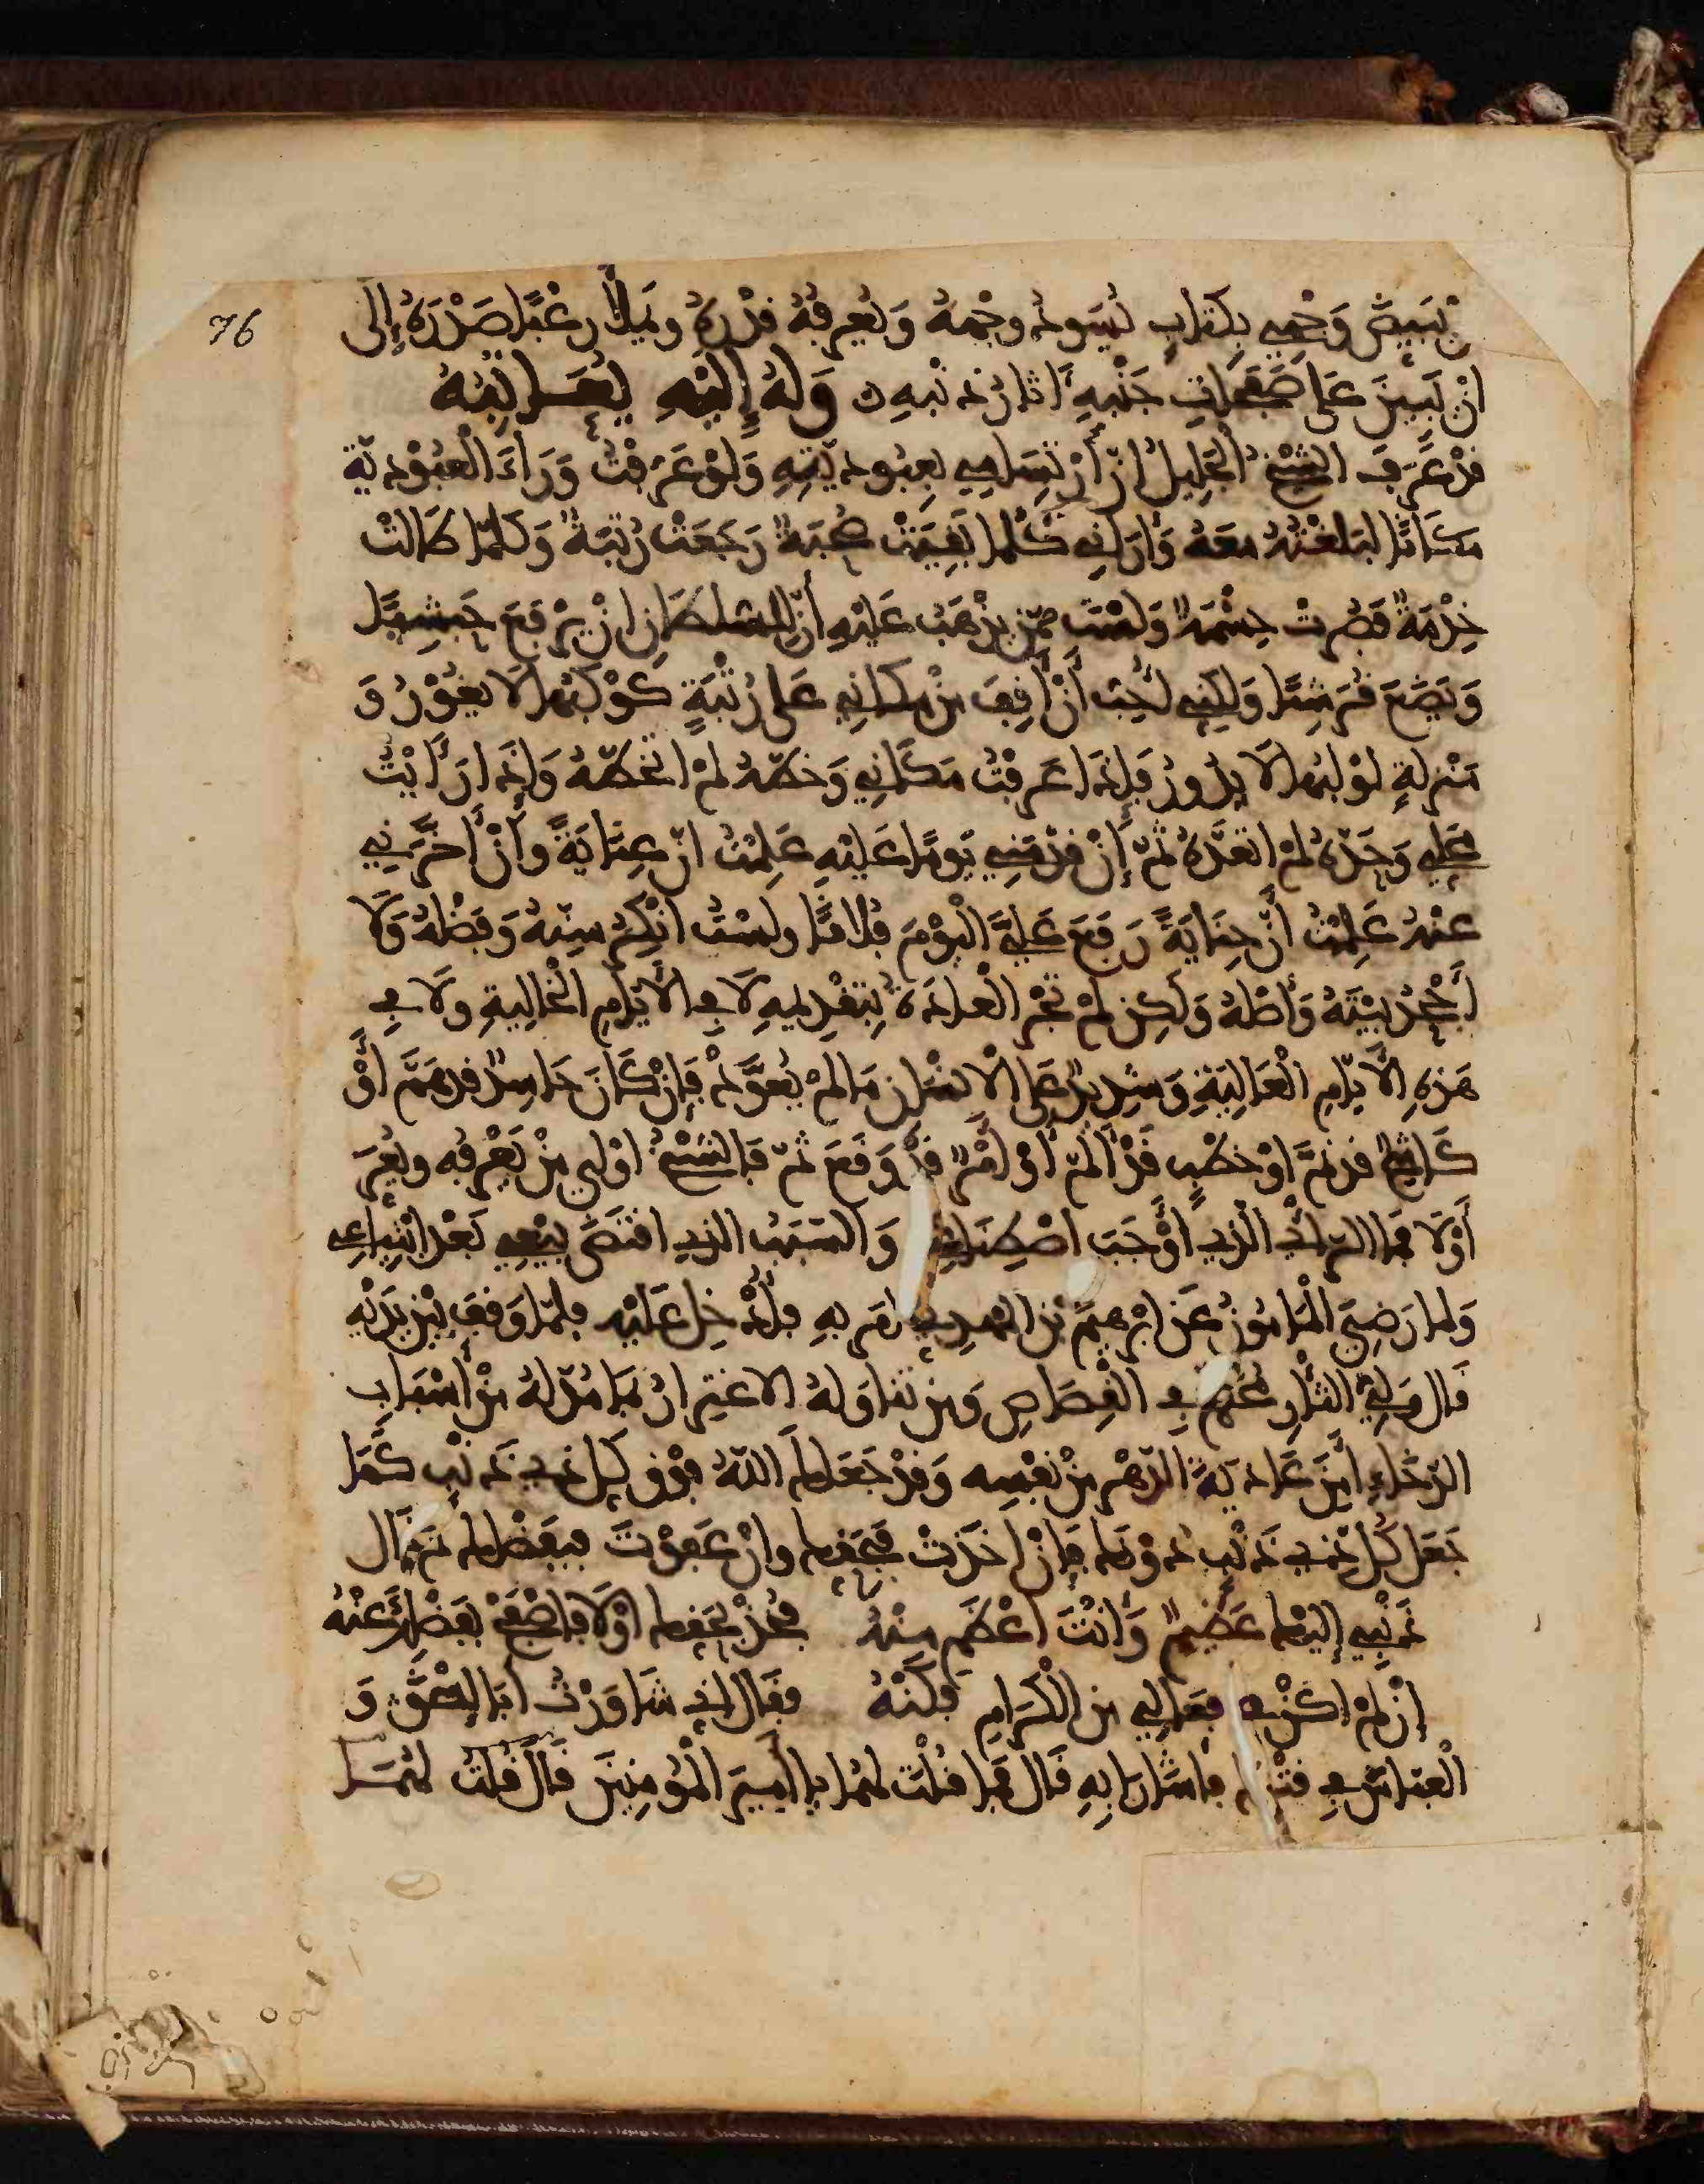 76
يُبَيِّضُ وَجْهِي بِكِتَابٍ يُسَوِّدُ وجْهَهُ وَيُعَرِّفُهُ قَدْرَهُ ويَمْلَأُ رُعْبًا صَدْرَهُ إِلَى
انْ تَبِينَ عَلَى صَفَحَاتِ جَنْبِهِ آثَارُ ذَنْبِهِ وَلَهُ إِلَيْهِ يُعَاتِبُهُ
قَدْ عَرَفَ الشَّيْخُ الجَلِيلُ اتِّسَامِي بِعُبُودِيَّتِهِ وَلَوْ عَرَفْتُ وَرَاءَ الْعُبُوْدِيَّةِ
مَكَانًا لبَلَغْتُهُ مَعَهُ وَأَرَانِي كُلَّمَا صُحْبَةً رَجَعْتُ رُتْبَةً وَكُلَّمَا طَالَتْ
خِدْمَةً قَصُرَتْ حِشْمَةً وَلَسْتُ مِمَّنْ يَذْهَبُ عَلَيْهِ أَنَّ لِلسُّلْطَانِ انْ يَرْفَعَ حَبَشِيًّا
وَيَضَعَ قُرَشِيًّا وَلَكِنِّي أُحِبُّ أَنْ أَقِفَ مِنْ مَكَانِي عَلَى رُتْبَةٍ كَوْكَبُهَا لَا يَغُوْرُ وَ
مَنْزِلَةٍ لَوْلَبُهَا لَا يَدُورُ فَإِذَا عَرَفْتُ مَكَانِي وَخَطَّهُ لَمْ اتَخَطَّهُ وَإِذَا رَأَيْتُ
مَحَلِّي وَحَدَّهُ لَمْ اتَعَدَّهُ ثُمَّ إِنْ قَدَّمَنِي يَوْمًا عَلَيْهِ عَلِمْتُ انَّ عِنَايَةً وأَنْ أَخَّرَنِي
عَنْهُ عَلِمْتُ أَنَّ جِنَايَةً رَفَعَ عَلَيَّ الْيَوْمَ فُلَانًا ولَسْتُ انْكِرُ سِنَّهُ وَفَضْلَهُ وَلَا
أَجْحَدُ بَيْتَهُ وَأَصْلَهُ وَلَكِنْ لَمْ تَجْرِ الْعَادَةُ بِتَقْدِيمِهِ لَا فِي الْأَيَّامِ الْخَالِيَةِ وَلَا فِي
هَذِهِ الْأَيَّامِ الْعَالِيَةِ وَشَدِيدٌ عَلَى الْإِنْسَانِ مَا لَمْ يُعَوَّدْ فَإِنْ كَانَ حَاسِدٌ قَدْ هَمَّ أَوْ
كَاشِحٌ قَدْ نَمَّ اوْ خَطْبٌ قَدْ أَلَمَّ أَوْ أَمْرٌ قَدْ وَقَعَ ثَمَّ فَالشَّيْخُ اوْلَى مَنْ يَعْرِفُهُ ويُعَرِّ
أَوْلَا فَمَا الرَّأْيُ الَّذِي أَوْجَبَ اصْطِنَاعِي وَالسَّبَبُ الَّذِي اقْتَضَى بَيْعِي بَعْدَ ابْتِيَاعِي
وَلَمَا رَضِيَ الْمَأْمُونُ عَنْ ابْرَهِيمَ بْنِ الْمَهْدِي أَمَرَ بِهِ فَأُدْخِلَ عَلَيْهِ فَلَمَّا وَقَفَ بَيْنَ يَدَيْهِ
قَالَ وَلِيُّ الثَّأْرِ مُحَكَّمٌ فِي الْقِصَاصِ وَمَنْ تَنَاوَلَهُ الاغْتِرَارُ بِمَا مُدَّ لَهُ مِنْ أَسْبَابِ
الرَّخَاءِ أَمِنَ عَادِيَةَ الدَّهْرِ مِنْ نَفْسِه وَقَدْ جَعَلَكَ اللهُ فَوْقَ كُلِّ ذِي ذَنْبٍ كَمَا
جَعَلَ كُلَّ ذِي ذَنْبٍ دُوْنَكَ فَإِنْ اخَذْتَ فَبِحَقِّكَ وانْ عَفَوْتَ فَبِفَضْلِكَ ثم قال
ذَنْبِي إِلَيْكَ عَظِيمٌ وَأَنْتَ اعْظَمُ مِنْهُ فَخُذْ بِحَقِّكَ أَوْلَا فَاصْفَحْ بِفَضْلِكَ عَنْهُ
إِنْ لَمْ اكُنْ فِي فِعَالِي مِنَ الْكِرَامِ فَكُنْهُ فقَالَ انِّي شَاوَرْتُ أَبَا إِسْحَقَ وَ
الْعَبَّاسَ فِي قَتْلِكَ فَأَشَارَا بِهِ قَالَ فَمَا قُلْتَ لَهُمَا يَا أَمِيرَ الْمُؤْمِنِينَ قَالَ قُلْتُ لَهُمَا